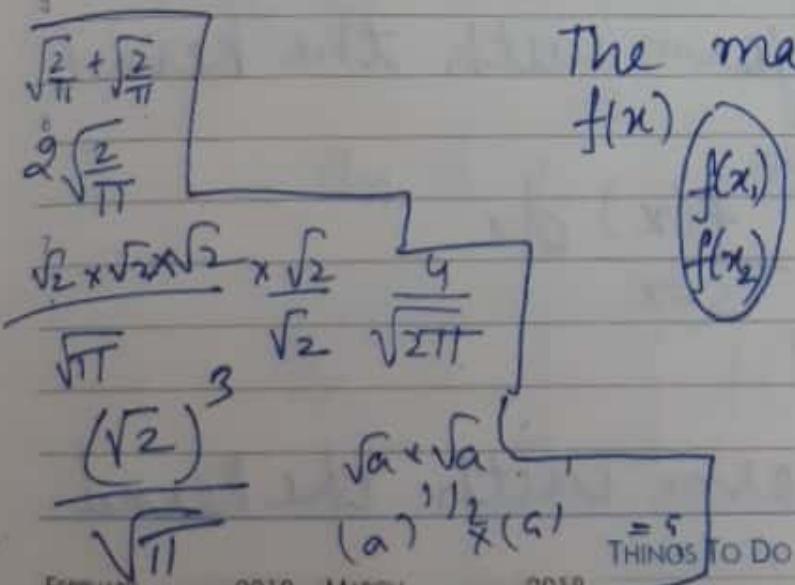 √(2/π) + √(2/π)
2√(2/π)
(√2 × √2 × √2)/√π × √2/√2 4/√(2π)
(√2)³/√π
√a × √a
(a)^(1/2) ×
The ma
f(x)
f(x₁)
f(x₂)
THINGS TO DO
2019